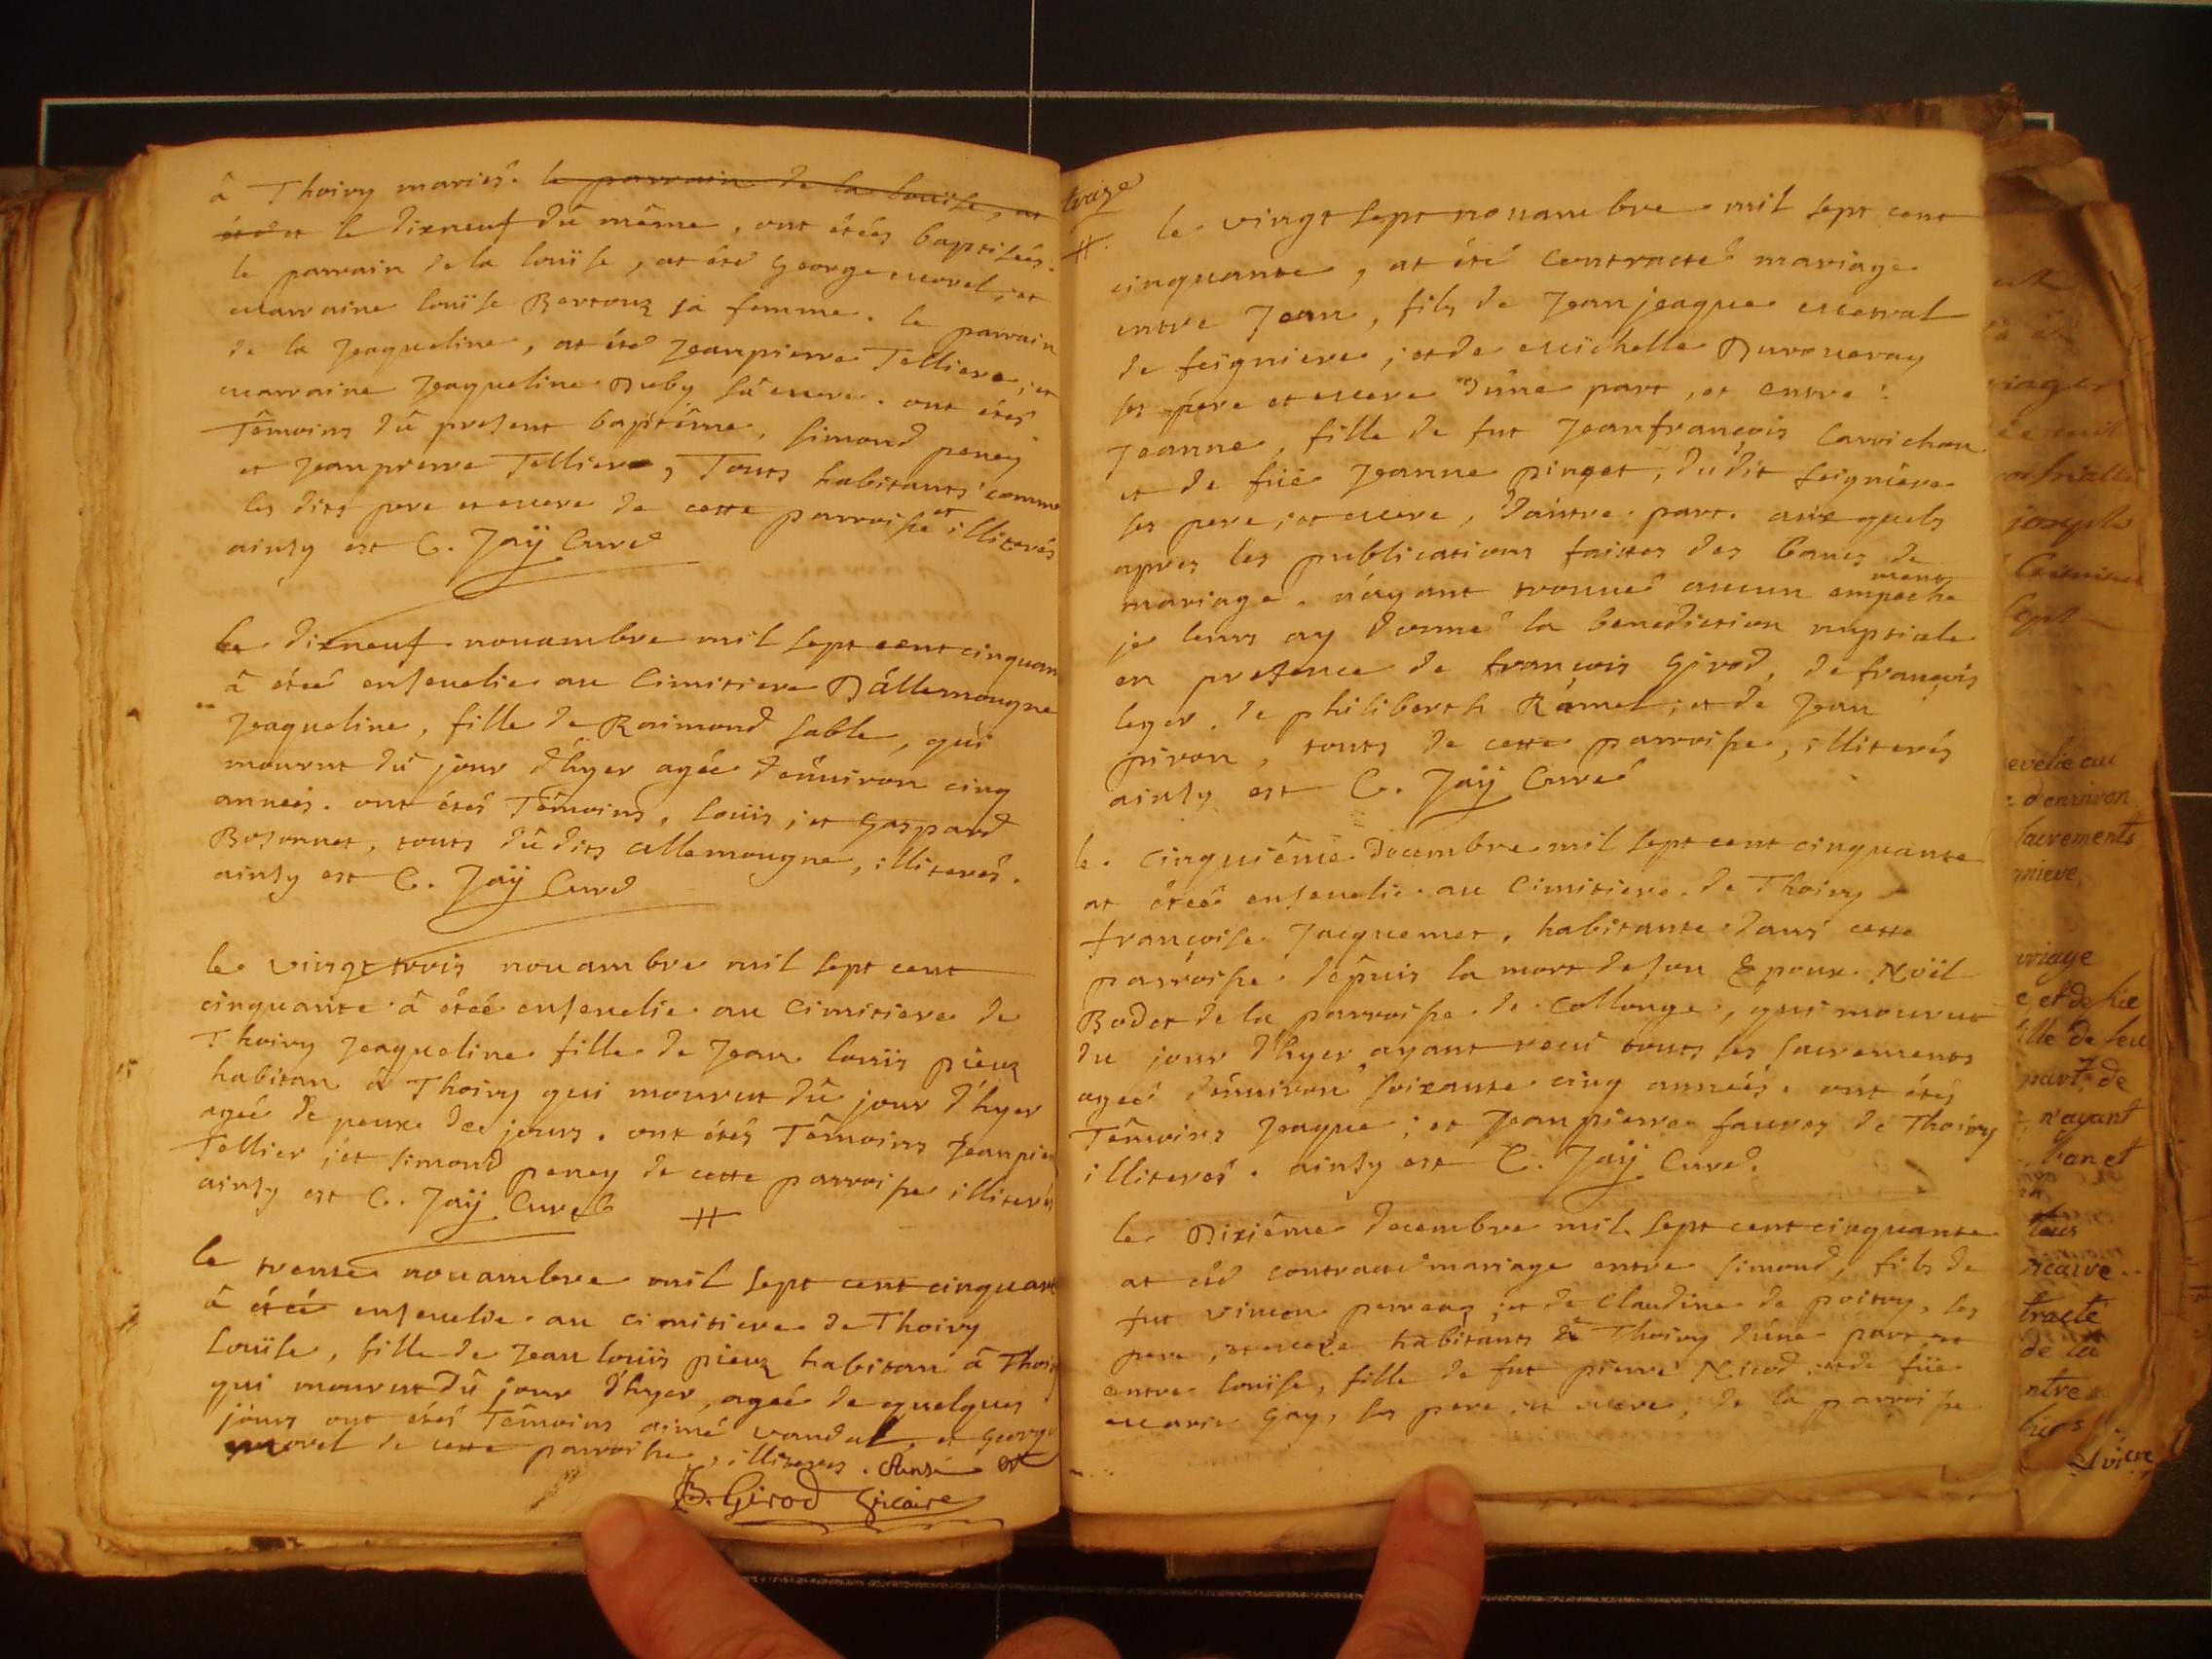 â Thoiry mariés. le parrain de la louïse, at
été et le dixneuf dû même, ont étées baptisées.
le parrain de la louïse, at été George morel, et
marraine louïse Bertouz sa femme. le parrain
de la Jeaqueline, at été Jeanpierre Telliere, et
marraine Jeaqueline Duby sa mere. ont étés
Têmoins dû present baptême, simond peney
et Jeanpierre Telliere, Touts habitants comme
les dits pere et mere de cette parroisse et illiterés
ainsy est C. Jaÿ Curé
le dixneuf nouambre mil sept cent cinquan
â étéé enseuelie au Cimitiere D'allemougne
Jeaqueline, fille de Raimond sable, qui
mourut dû jour d'hyer agéé d'enuiron cinq
années. ont étés Têmoins, louïs, et Gaspard
Bosonnet, touts dû dits allemougne, illiterés.
ainsy est C. Jaÿ Curé
le vingt trois nouambre mil sept cent
cinquante â étéé enseuelie au Cimitiere de
Thoiry Jeaqueline fille de Jean louïs pieuz
habitan â Thoiry qui mourut dû jour d'hyer
agéé de peux de jours. ont étés Têmoins Jeanpier
Tellier, et simond peney de cette parroisse illiterés
ainsy est C. Jaÿ Curé #
le trente nouambre mil sept cent cinquant
â étéé enseuelie au cimitiere de Thoiry
louïse, fille de Jean louïs pieuz habitan â Thoiry
qui mourut dû jour d'hyer, agéé de quelques
jours ont étés Têmoins aimé vandel, et George
morel de cette parroisse, illiterés. Ainsi est
B. Girod Vicaire
treize
#
le vingt sept nouambre mil sept cent
cinquante, at été Contracté mariage
entre Jean, fils de Jean jeaque mermal
de feigniere, et de michelle Duroueray
ses pere et mere d'une part, et entre
Jeanne, fille de fut Jeanfrançois Carrichon
et de füe Jeanne pinget, dû dit feigniere
ses pere, et mere, d'autre part. aux quels
apres les publications faittes des bancs de
mariage. n'ayant trouué aucun empeche
ment
je leurs ay donné la benediction nuptiale
en presence de françois Girod, de françois
leger, de philiberth Ramel, et de Jean
piron, touts de cette parroisse, illiterés
ainsy est C. Jaÿ Curé
le Cinquiême decembre mil sept cent cinquante
at étéé enseuelie au Cimitiere de Thoiry
françoise Jacquemet, habitante dans cette
parroisse depuis la mort de son Epoux Noël
Bodet de la parroisse de Collonge, qui mourut
du jour d'hyer, ayant recu touts les sacrements
agéé d'enuiron soixante cinq années. ont étés
Têmoins Jeaque, et Jeanpierre faures de Thoiry
illiterés. ainsy est C. Jaÿ Curé.
le Dixiême decembre mil sept cent cinquante
at été contracté mariage entre simond, fils de
fut vincen et de Claudine de poitry, ses
pere, et mere habitants â Thoiry d'une part, et
entre louïse, fille de fut pierre Nicod, et de füe
marie Gay, ses pere, et mere, de la parroisse
joseph
sept
evelie au
d'enuiron
sacrements
gniere
riage
e, et de füe
ille de feu
part, de
n'ayant
banct
tous
vicaire
tracté
de la
ntre